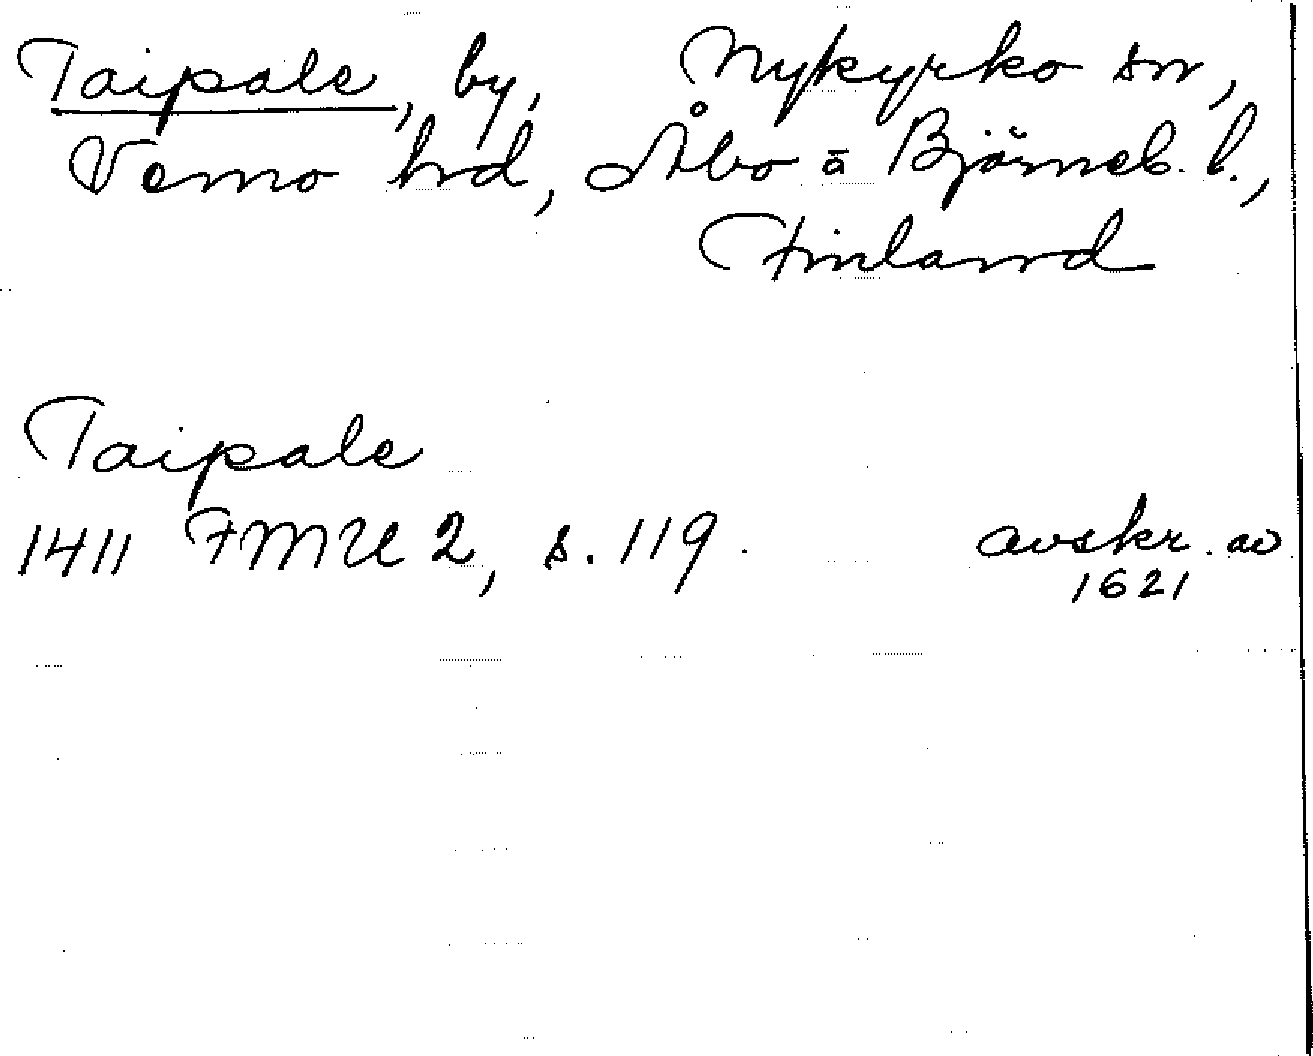 Taipale, by, Nykyrko sn,
Vemo hrd, Åbo o Björneb. l.,
Finland
Taipale
1411 FMU 2, s. 119. avskr. av
1621